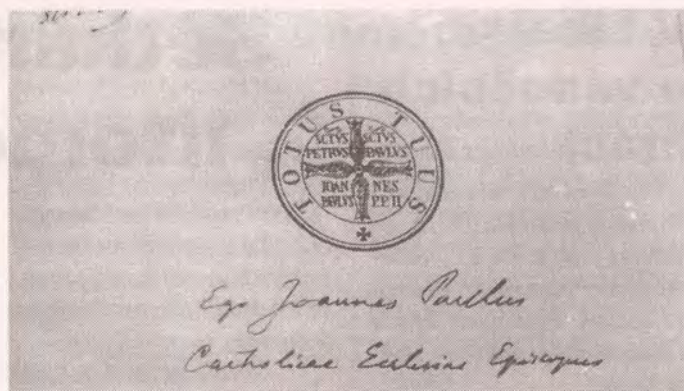 TOTUS TUUS
SCTVS SCTVS
PETRVS PAVLVS
IOAN NES
PAVLVS P.P. II
Ego Joannes Paulus
Catholicae Ecclesiae Episcopus